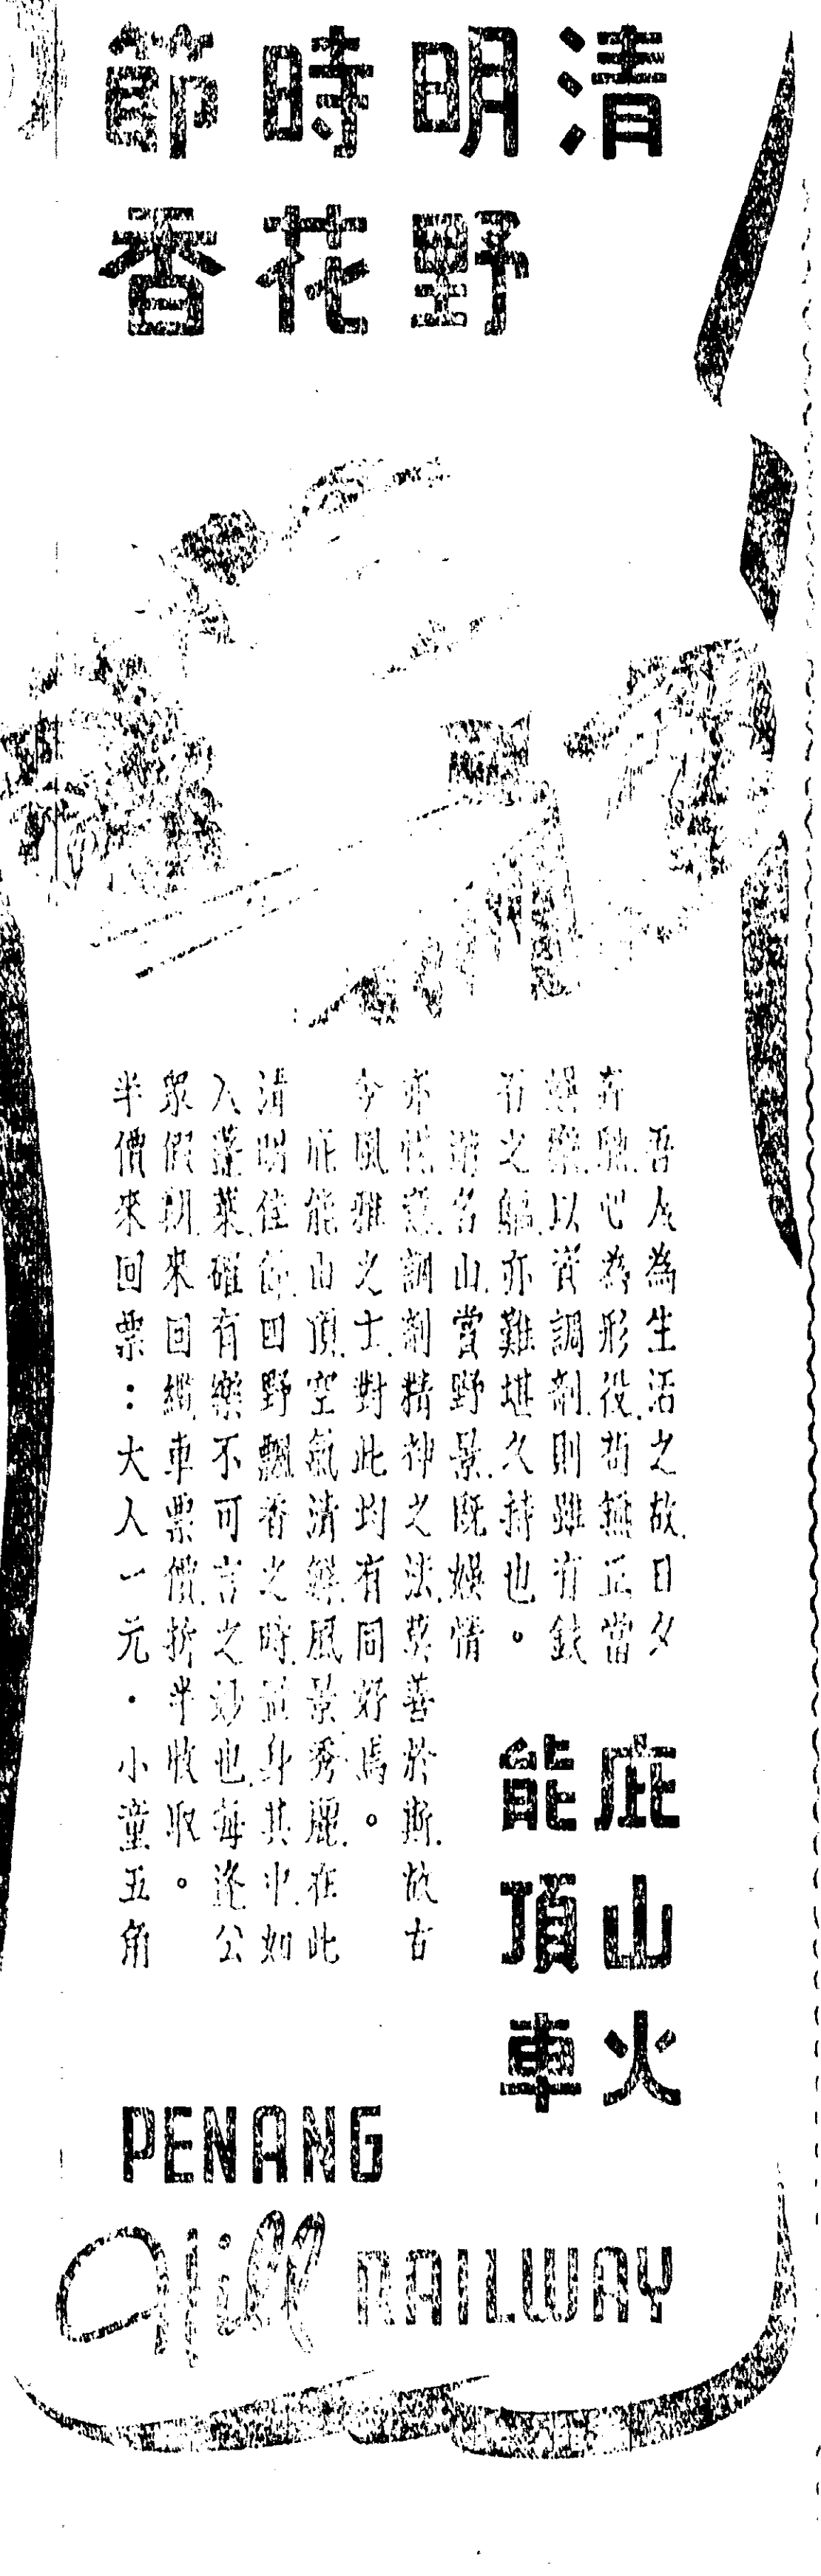 清明時節
野花香
吾人為生活之故日夕
奔馳心為形役苟無正當
娛樂以資調劑則雖有鉄
石之軀亦難堪久持也。
遊名山賞野景既娛情
亦愜意調劑精神之法莫善於斯故古
今風雅之士對此均有同好焉。
庇能山頂空氣清鮮風景秀麗在此
清明佳節田野飄香之時置身其中如
入蓬萊確有樂不可言之妙也每逢公
眾假期來回纜車票價折半收取。
半價來回票：大人一元．小童五角
庇能
山頂
火車
PENANG
Hill RAILWAY